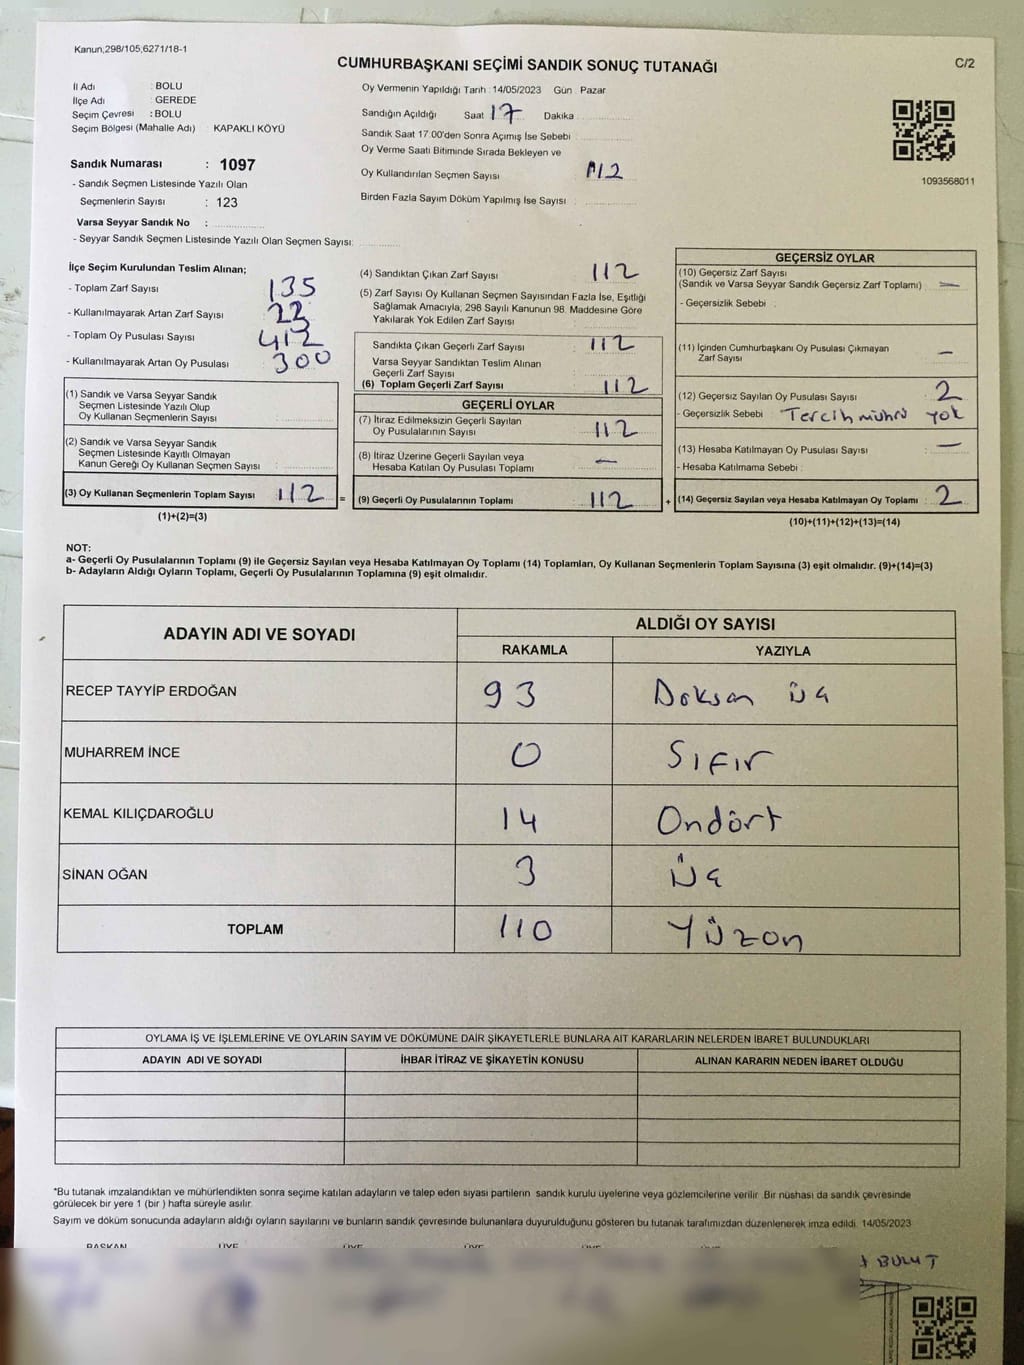 Kanun,298/105,6271/18-1
CUMHURBAŞKANI SEÇİMİ SANDIK SONUÇ TUTANAĞI
C/2
İl Adı : BOLU
İlçe Adı : GEREDE
Seçim Çevresi : BOLU
Seçim Bölgesi (Mahalle Adı) KAPAKLI KÖYÜ
Sandık Numarası : 1097
- Sandık Seçmen Listesinde Yazılı Olan
Seçmenlerin Sayısı : 123
Varsa Seyyar Sandık No :
- Seyyar Sandık Seçmen Listesinde Yazılı Olan Seçmen Sayısı:
Oy Vermenin Yapıldığı Tarih : 14/05/2023 Gün : Pazar
Sandığın Açıldığı Saat 17 Dakika
Sandık Saat 17.00'den Sonra Açımış İse Sebebi
Oy Verme Saati Bitiminde Sırada Bekleyen ve
Oy Kullandırılan Seçmen Sayısı 112
Birden Fazla Sayım Döküm Yapılmış İse Sayısı :
1093568011
İlçe Seçim Kurulundan Teslim Alınan;
- Toplam Zarf Sayısı 135
- Kullanılmayarak Artan Zarf Sayısı 22
- Toplam Oy Pusulası Sayısı 412
- Kullanılmayarak Artan Oy Pusulası 300
(1) Sandık ve Varsa Seyyar Sandık
Seçmen Listesinde Yazılı Olup
Oy Kullanan Seçmenlerin Sayısı
(2) Sandık ve Varsa Seyyar Sandık
Seçmen Listesinde Kayıtlı Olmayan
Kanun Gereği Oy Kullanan Seçmen Sayısı :
(3) Oy Kullanan Seçmenlerin Toplam Sayısı 112 =
(1)+(2)=(3)
(4) Sandıktan Çıkan Zarf Sayısı 112
(5) Zarf Sayısı Oy Kullanan Seçmen Sayısından Fazla İse, Eşitliği
Sağlamak Amacıyla, 298 Sayılı Kanunun 98. Maddesine Göre
Yakılarak Yok Edilen Zarf Sayısı
Sandıkta Çıkan Geçerli Zarf Sayısı : 112
Varsa Seyyar Sandıktan Teslim Alınan
Geçerli Zarf Sayısı
(6) Toplam Geçerli Zarf Sayısı 112
GEÇERLİ OYLAR
(7) İtiraz Edilmeksizin Geçerli Sayılan
Oy Pusulalarının Sayısı 112
(8) İtiraz Üzerine Geçerli Sayılan veya
Hesaba Katılan Oy Pusulası Toplamı : –
(9) Geçerli Oy Pusulalarının Toplamı 112 +
GEÇERSİZ OYLAR
(10) Geçersiz Zarf Sayısı
(Sandık ve Varsa Seyyar Sandık Geçersiz Zarf Toplamı) : –
- Geçersizlik Sebebi :
(11) İçinden Cumhurbaşkanı Oy Pusulası Çıkmayan
Zarf Sayısı –
(12) Geçersiz Sayılan Oy Pusulası Sayısı 2
- Geçersizlik Sebebi : Tercih mührü yok
(13) Hesaba Katılmayan Oy Pusulası Sayısı : –
- Hesaba Katılmama Sebebi :
(14) Geçersiz Sayılan veya Hesaba Katılmayan Oy Toplamı : 2
(10)+(11)+(12)+(13)=(14)
NOT:
a- Geçerli Oy Pusulalarının Toplamı (9) ile Geçersiz Sayılan veya Hesaba Katılmayan Oy Toplamı (14) Toplamları, Oy Kullanan Seçmenlerin Toplam Sayısına (3) eşit olmalıdır. (9)+(14)=(3)
b- Adayların Aldığı Oyların Toplamı, Geçerli Oy Pusulalarının Toplamına (9) eşit olmalıdır.
ADAYIN ADI VE SOYADI ALDIĞI OY SAYISI
RAKAMLA YAZIYLA
RECEP TAYYİP ERDOĞAN 93 Doksan üç
MUHARREM İNCE 0 Sıfır
KEMAL KILIÇDAROĞLU 14 Ondört
SİNAN OĞAN 3 Üç
TOPLAM 110 Yüzon
OYLAMA İŞ VE İŞLEMLERİNE VE OYLARIN SAYIM VE DÖKÜMÜNE DAİR ŞİKAYETLERLE BUNLARA AİT KARARLARIN NELERDEN İBARET BULUNDUKLARI
ADAYIN ADI VE SOYADI İHBAR İTİRAZ VE ŞİKAYETİN KONUSU ALINAN KARARIN NEDEN İBARET OLDUĞU
*Bu tutanak imzalandıktan ve mühürlendikten sonra seçime katılan adayların ve talep eden siyasi partilerin sandık kurulu üyelerine veya gözlemcilerine verilir. Bir nüshası da sandık çevresinde
görülecek bir yere 1 (bir ) hafta süreyle asılır.
Sayım ve döküm sonucunda adayların aldığı oyların sayılarını ve bunların sandık çevresinde bulunanlara duyurulduğunu gösteren bu tutanak tarafımızdan düzenlenerek imza edildi. 14/05/2023
BAŞKAN ÜYE ÜYE ÜYE ÜYE ÜYE
BULUT